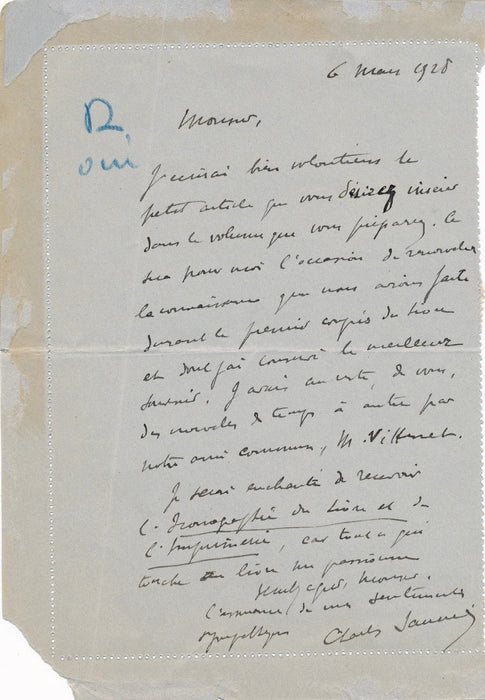 6 Mars 1928
R.
oui
Monsieur,
J'écrirai bien volontiers le
petit article que vous désirez insérer
dans le volume que vous préparez. Ce
sera pour moi l'occasion de renouveler
la connaissance que nous avions faite
durant le premier congrès du livre
et dont j'ai conservé le meilleur
souvenir. J'avais au reste, de vous,
des nouvelles de temps à autre par
notre ami commun, M.
Je serai enchanté de recevoir
l'Iconographie du Livre et de
l'Imprimerie, car tout ce qui
touche au livre me passionne
Monsieur,
l'assurance de mes sentiments
sympathiques
Charles